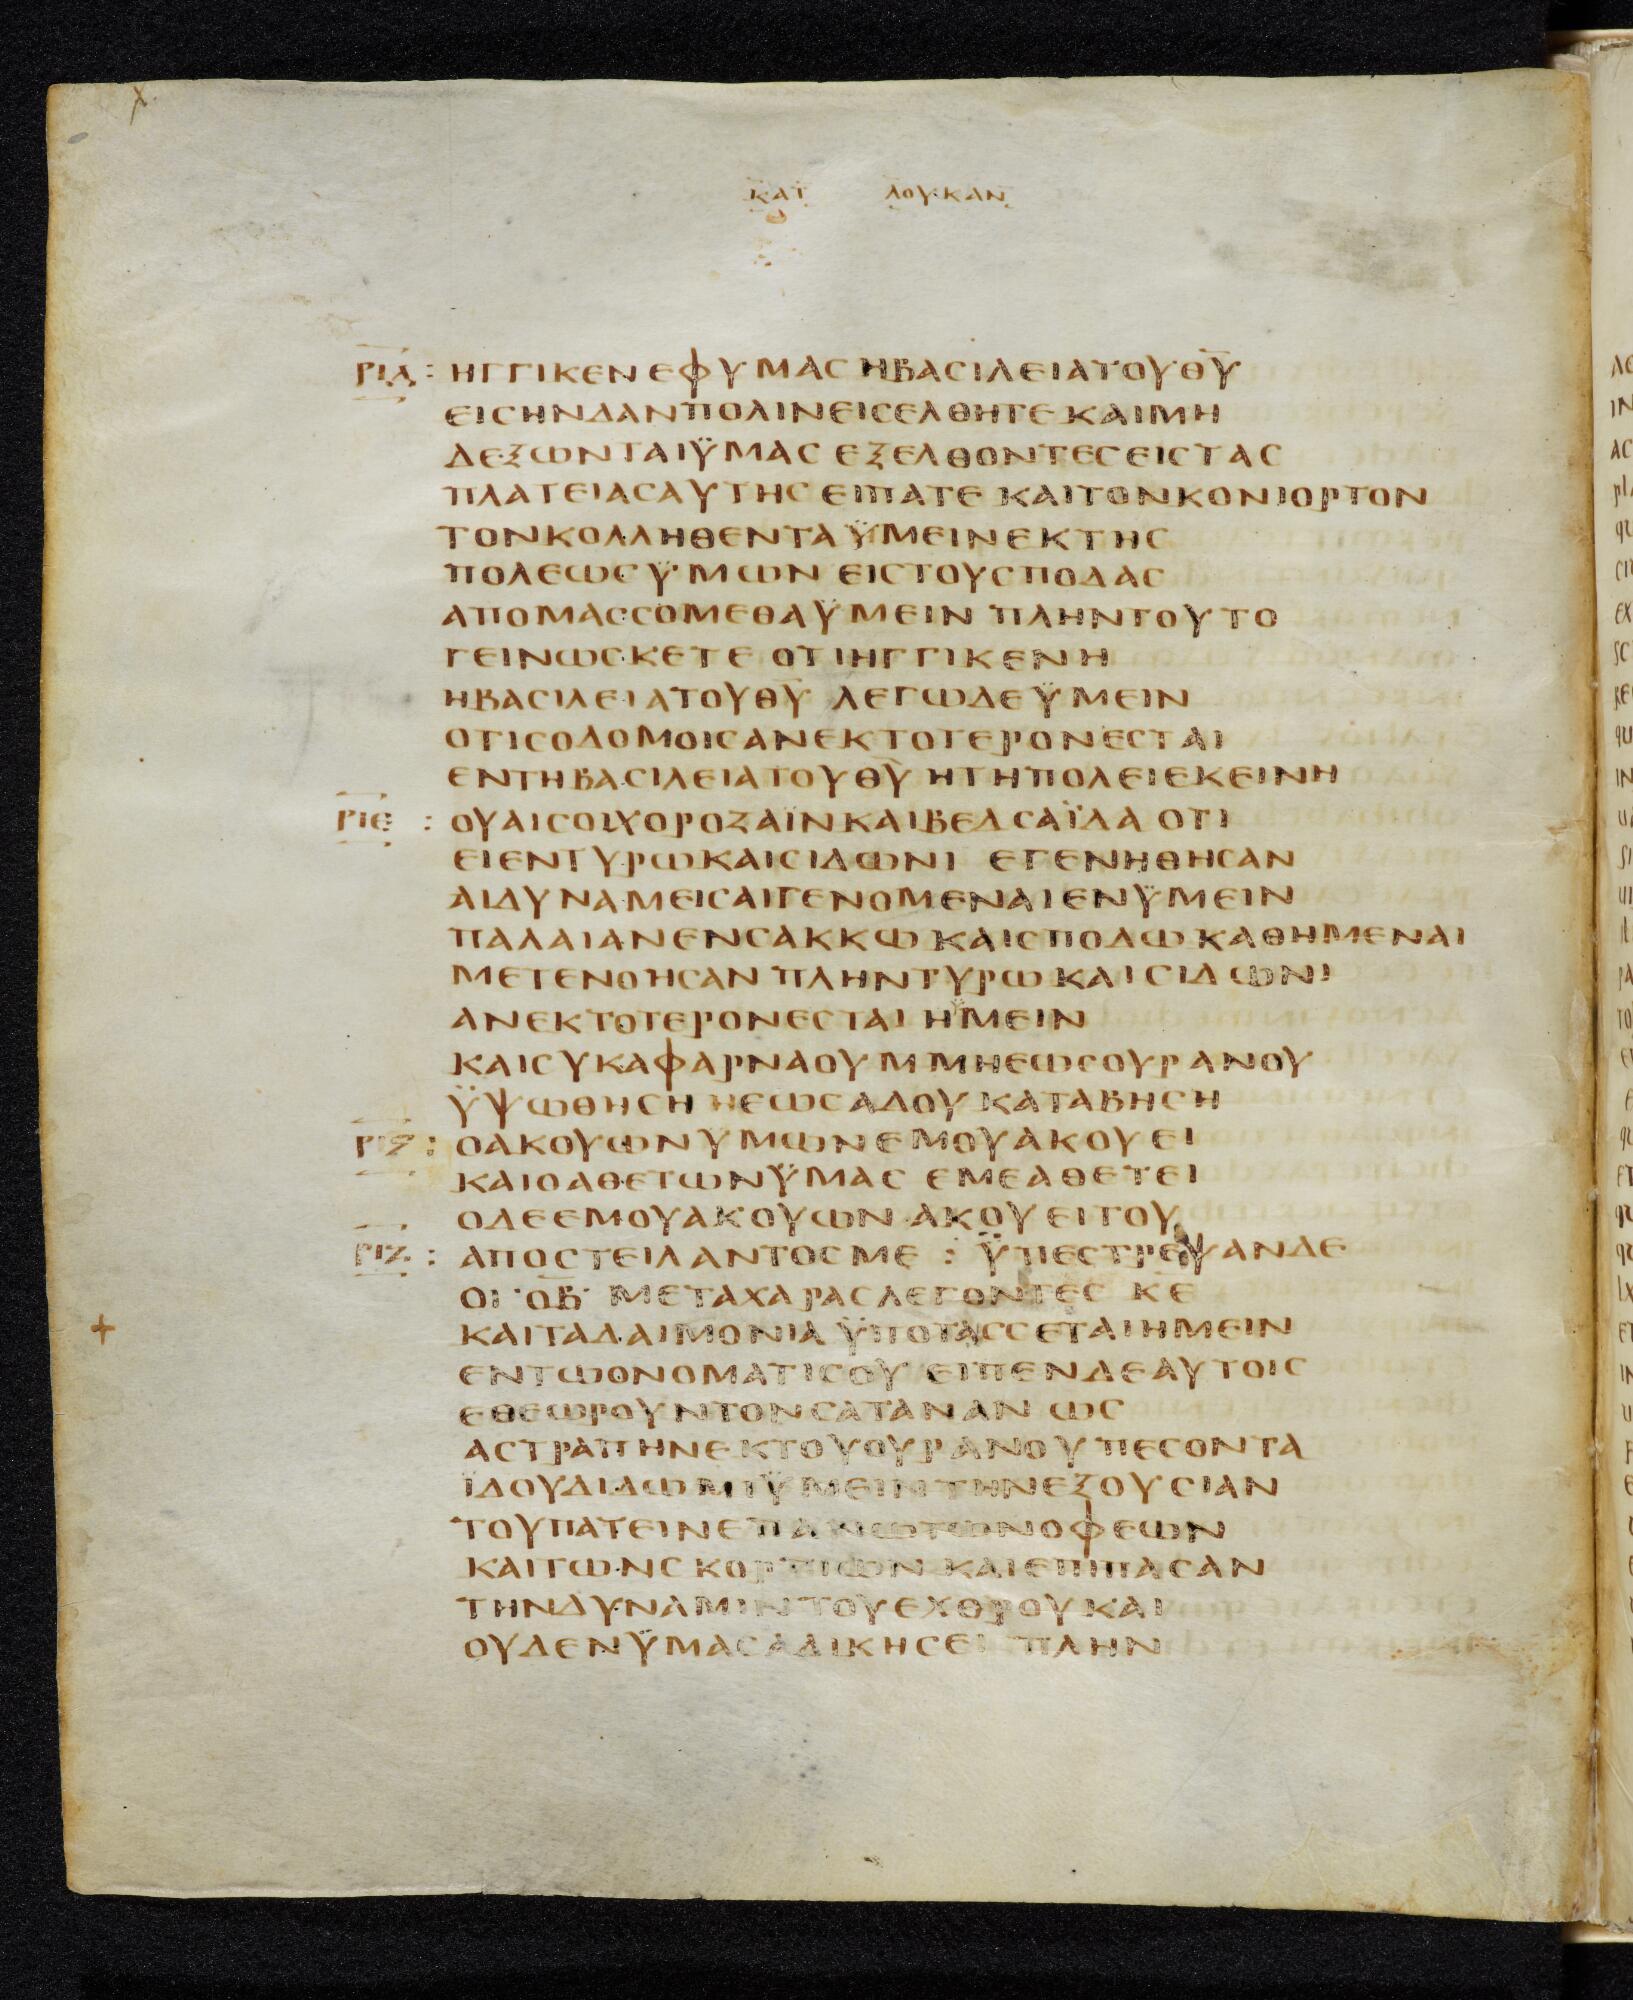 ΚΑΤ ΛΟΥΚΑΝ
ΡΙΔ : ΗΓΓΙΚΕΝ ΕΦ ΥΜΑΣ Η ΒΑΣΙΛΕΙΑ ΤΟΥ ΘΥ
ΕΙΣ ΗΝ ΔΑΝ ΠΟΛΙΝ ΕΙΣΕΛΘΗΤΕ ΚΑΙ ΜΗ
ΔΕΞΩΝΤΑΙ ΫΜΑΣ ΕΞΕΛΘΟΝΤΕΣ ΕΙΣ ΤΑΣ
ΠΛΑΤΕΙΑΣ ΑΥΤΗΣ ΕΙΠΑΤΕ ΚΑΙ ΤΟΝ ΚΟΝΙΟΡΤΟΝ
ΤΟΝ ΚΟΛΛΗΘΕΝΤΑ ΫΜΕΙΝ ΕΚ ΤΗΣ
ΠΟΛΕΩΣ ΥΜΩΝ ΕΙΣ ΤΟΥΣ ΠΟΔΑΣ
ΑΠΟΜΑΣΣΟΜΕΘΑ ΫΜΕΙΝ ΠΛΗΝ ΤΟΥΤΟ
ΓΕΙΝΩΣΚΕΤΕ ΟΤΙ ΗΓΓΙΚΕΝ Η
Η ΒΑΣΙΛΕΙΑ ΤΟΥ ΘΥ ΛΕΓΩ ΔΕ ΫΜΕΙΝ
ΟΤΙ ΣΟΔΟΜΟΙΣ ΑΝΕΚΤΟΤΕΡΟΝ ΕΣΤΑΙ
ΕΝ ΤΗ ΒΑΣΙΛΕΙΑ ΤΟΥ ΘΥ Η ΤΗ ΠΟΛΕΙ ΕΚΕΙΝΗ
ΡΙΕ : ΟΥΑΙ ΣΟΙ ΧΟΡΟΖΑΪΝ ΚΑΙ ΒΕΔΣΑΪΔΑ ΟΤΙ
ΕΙ ΕΝ ΤΥΡΩ ΚΑΙ ΣΙΔΩΝΙ ΕΓΕΝΗΘΗΣΑΝ
ΑΙ ΔΥΝΑΜΕΙΣ ΑΙ ΓΕΝΟΜΕΝΑΙ ΕΝ ΫΜΕΙΝ
ΠΑΛΑΙ ΑΝ ΕΝ ΣΑΚΚΩ ΚΑΙ ΣΠΟΔΩ ΚΑΘΗΜΕΝΑΙ
ΜΕΤΕΝΟΗΣΑΝ ΠΛΗΝ ΤΥΡΩ ΚΑΙ ΣΙΔΩΝΙ
ΑΝΕΚΤΟΤΕΡΟΝ ΕΣΤΑΙ Η ΥΜΕΙΝ
ΚΑΙ ΣΥ ΚΑΦΑΡΝΑΟΥΜ ΜΗ ΕΩΣ ΟΥΡΑΝΟΥ
ΫΨΩΘΗΣΗ Η ΕΩΣ ΑΔΟΥ ΚΑΤΑΒΗΣΗ
ΡΙϚ : Ο ΑΚΟΥΩΝ ΥΜΩΝ ΕΜΟΥ ΑΚΟΥΕΙ
ΚΑΙ Ο ΑΘΕΤΩΝ ΫΜΑΣ ΕΜΕ ΑΘΕΤΕΙ
Ο ΔΕ ΕΜΟΥ ΑΚΟΥΩΝ ΑΚΟΥΕΙ ΤΟΥ
ΡΙΖ : ΑΠΟΣΤΕΙΛΑΝΤΟΣ ΜΕ : ΫΠΕΣΤΡΕΨΑΝ ΔΕ
ΟΙ ΟΒ ΜΕΤΑ ΧΑΡΑΣ ΛΕΓΟΝΤΕΣ ΚΕ
ΚΑΙ ΤΑ ΔΑΙΜΟΝΙΑ ΫΠΟΤΑΣΣΕΤΑΙ ΗΜΕΙΝ
ΕΝ ΤΩ ΟΝΟΜΑΤΙ ΣΟΥ ΕΙΠΕΝ ΔΕ ΑΥΤΟΙΣ
ΕΘΕΩΡΟΥΝ ΤΟΝ ΣΑΤΑΝΑΝ ΩΣ
ΑΣΤΡΑΠΗΝ ΕΚ ΤΟΥ ΟΥΡΑΝΟΥ ΠΕΣΟΝΤΑ
ΪΔΟΥ ΔΙΔΩΜΙ ΫΜΕΙΝ ΤΗΝ ΕΞΟΥΣΙΑΝ
ΤΟΥ ΠΑΤΕΙΝ ΕΠΑΝΩ ΤΩΝ ΟΦΕΩΝ
ΚΑΙ ΤΩΝ ΣΚΟΡΠΙΩΝ ΚΑΙ ΕΠΙ ΠΑΣΑΝ
ΤΗΝ ΔΥΝΑΜΙΝ ΤΟΥ ΕΧΘΡΟΥ ΚΑΙ
ΟΥΔΕΝ ΫΜΑΣ ΑΔΙΚΗΣΕΙ ΠΛΗΝ